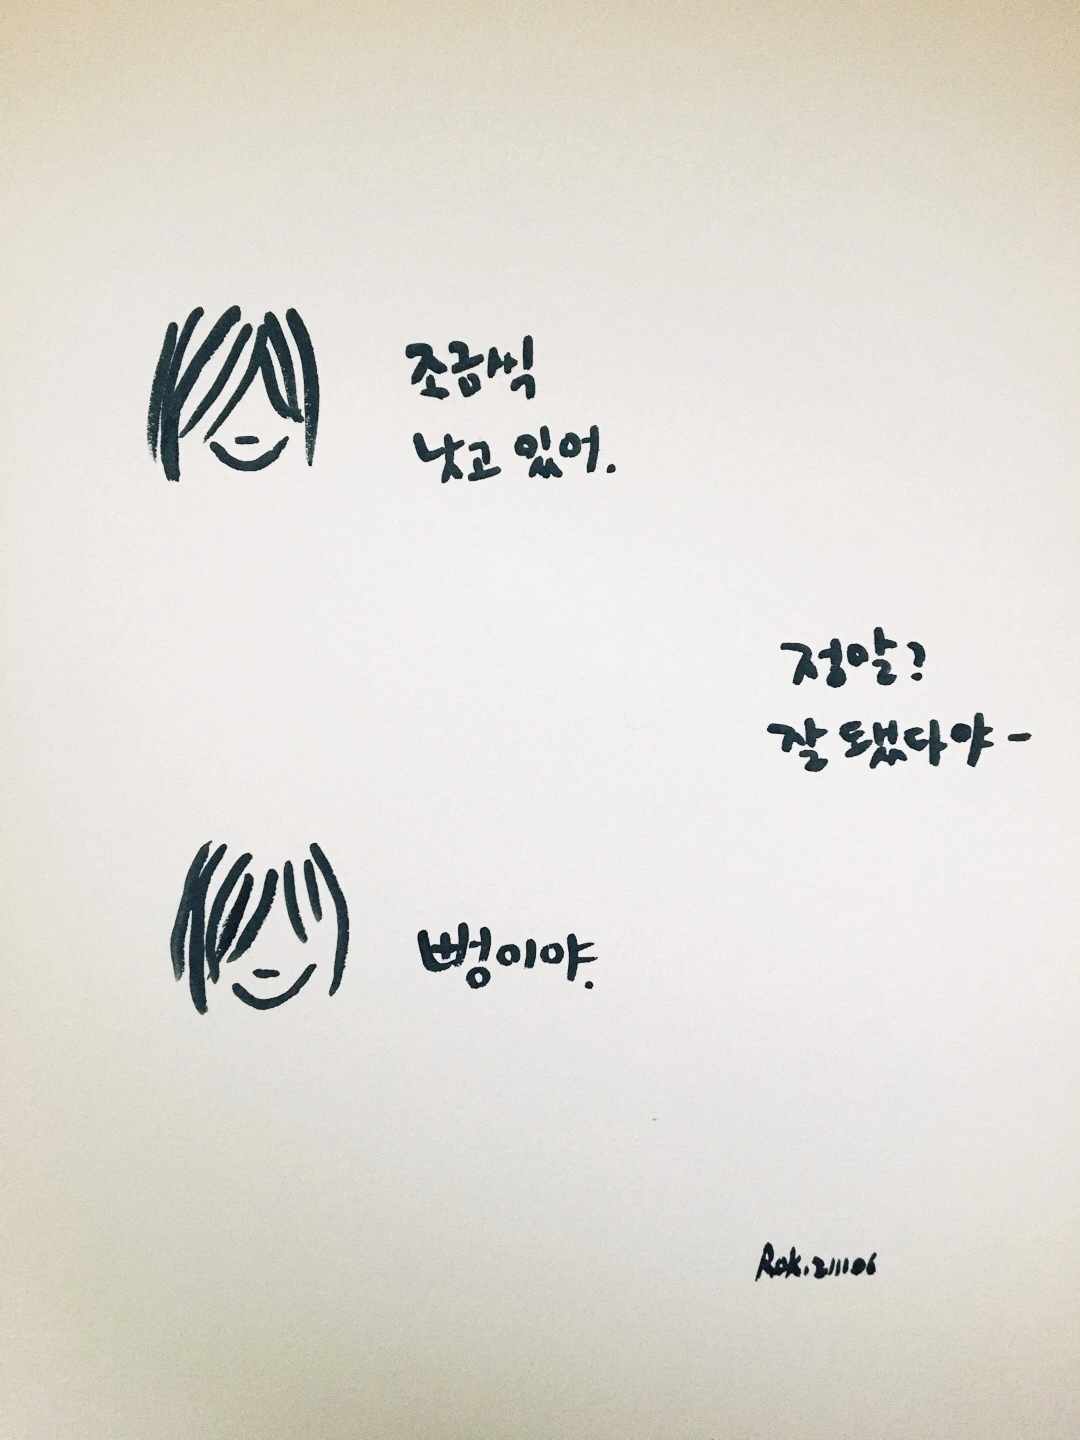 조금씩
낫고 있어.
정말?
잘 됐다야-
뻥이야.
Rok. 211106